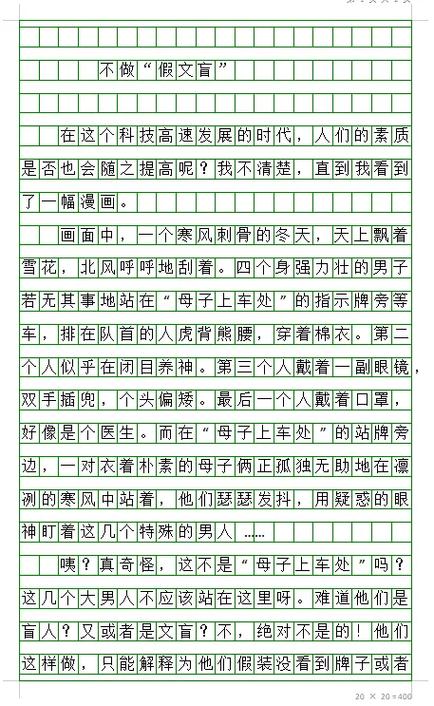 不做“假文盲”
在这个科技高速发展的时代，人们的素质
是否也会随之提高呢？我不清楚，直到我看到
了一幅漫画。
画面中，一个寒风刺骨的冬天，天上飘着
雪花，北风呼呼地刮着。四个身强力壮的男子
若无其事地站在“母子上车处”的指示牌旁等
车，排在队首的人虎背熊腰，穿着棉衣。第二
个人似乎在闭目养神。第三个人戴着一副眼镜，
双手插兜，个头偏矮。最后一个人戴着口罩，
好像是个医生。而在“母子上车处”的站牌旁
边，一对衣着朴素的母子俩正孤独无助地在凛
冽的寒风中站着，他们瑟瑟发抖，用疑惑的眼
神盯着这几个特殊的男人……
咦？真奇怪，这不是“母子上车处”吗？
这几个大男人不应该站在这里呀。难道他们是
盲人？又或者是文盲？不，绝对不是的！他们
这样做，只能解释为他们假装没看到牌子或者
20 × 20=400